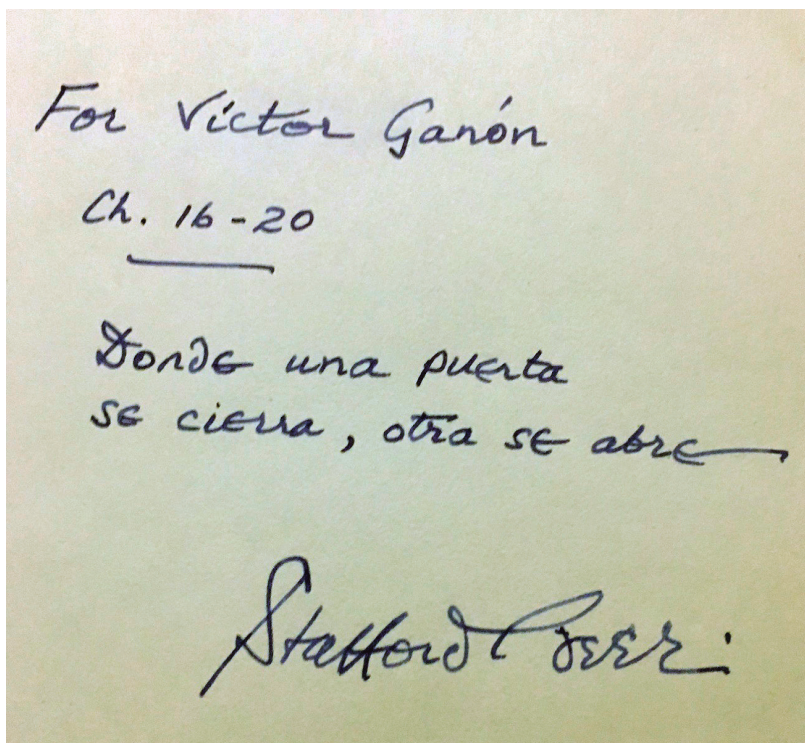 For Víctor Ganón
Ch. 16-20
Donde una puerta
se cierra, otra se abre
Stafford Beer